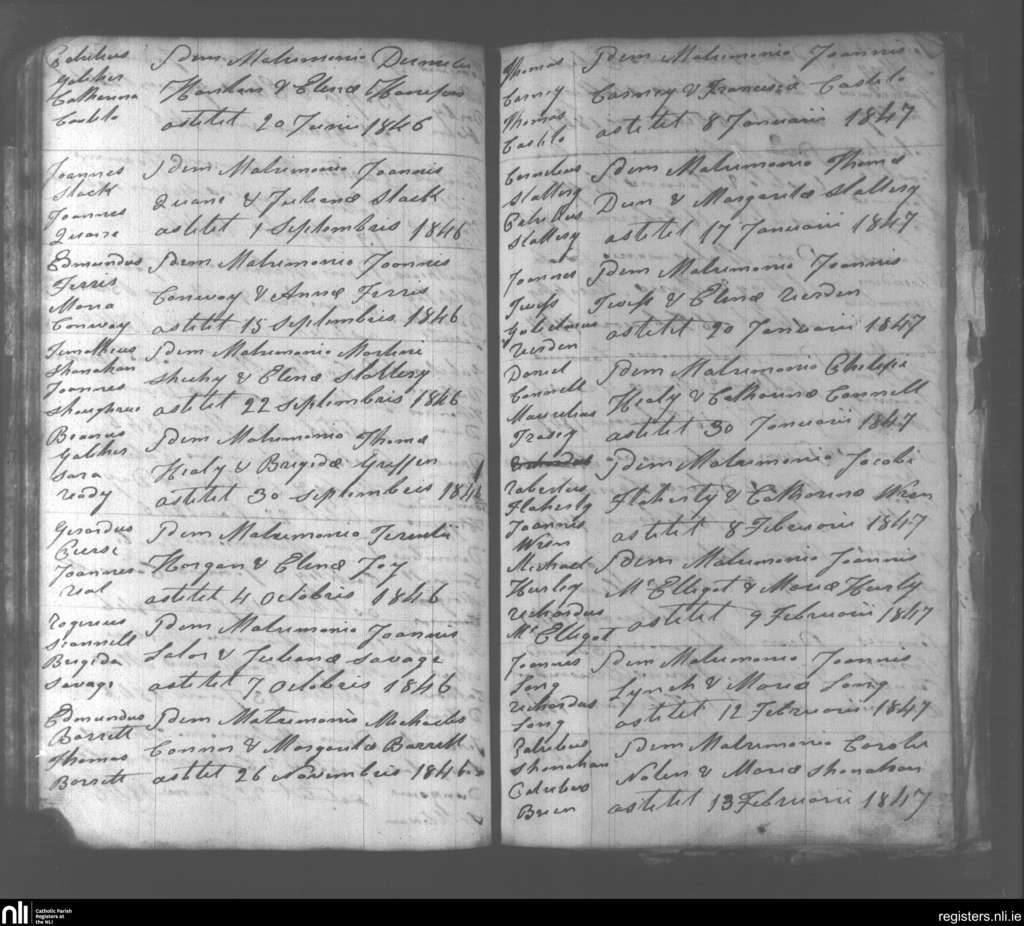 Idem Matrimonio
Galiher
Catherina
Costelo
astitit 20 Junii 1846
Joannes Idem Matrimonio Joannis
Slack
Quane & Julianæ Slack
Joannes
Quane astitit 1 Septembris 1846
Edmundus Idem Matrimonio Joannis
Ferris
Conway & Annæ Ferris
Maria
Conway astitit 15 Septembris 1846
Idem Matrimonio
Shanahan
Sheehy & Elenæ Slattery
Joannes
astitit 22 Septembris 1846
Idem Matrimonio Thomæ
Galiher
Healy & Brigidæ Griffin
Sara
ready astitit 30 Septembris 1846
Gerardus Idem Matrimonio
Joannes Horgan & Elenæ Foy
real astitit 4 Octobris 1846
Idem Matrimonio Joannis
Scannell
Lalor & Julianæ Savage
Brigida
Savage astitit 7 Octobris 1846
Edmundus Idem Matrimonio Michaelis
Barrett
Connor & Margaritæ Barrett
Thomas
Barrett astitit 26 Novembris 1846
Thomas Idem Matrimonio Joannis
Carney
Carney & Franciscæ Costelo
Thomas
Costelo astitit 8 Januarii 1847
Cornelius Idem Matrimonio Thomæ
Slattery
Dun & Margaritæ Slattery
Slattery astitit 17 Januarii 1847
Joannes Idem Matrimonio Joannis
Twiss
Twiss & Elenæ rierdon
rierdon astitit 20 Januarii 1847
Daniel Idem Matrimonio
Connell
Healy & Catherinæ Connell
astitit 30 Januarii 1847
Idem Matrimonio Jacobi
Robertus
Flaherty Flaherty & Catherinæ Wren
Joannes
Wren astitit 8 Februarii 1847
Michael Idem Matrimonio Joannis
Hurley
McElligot & Mariæ Hurly
richardus
McElligot astitit 9 Februarii 1847
Joannes Idem Matrimonio Joannis
Long
Lynch & Mariæ Long
richardus
Long astitit 12 Februarii 1847
Idem Matrimonio
Shanahan
Nolen & Mariæ Shanahan
astitit 13 Februarii 1847
nli
Catholic Parish
Registers at
the NLI
registers.nli.ie